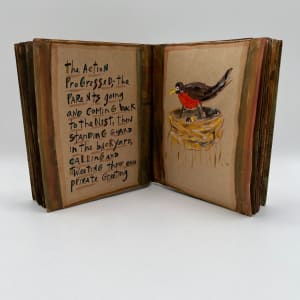 the ActION
PROGRESSED; the
PARENTS going
AND COMING back
to the NEST, then
STANDING GUARD
IN the backyard,
CALLING AND
TWEETING their own
PRIVATE Greeting